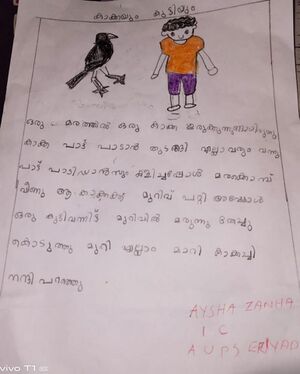 കാക്കയും കുട്ടിയും
ഒരു മരത്തിൽ ഒരു കാക്ക ഇരുക്കുന്നുണ്ടായിരുന്നു
കാക്ക പാട്ട് പാടാൻ തുടങ്ങി എല്ലാവരും വന്നു
പാട്ട് പാടി ഡാൻസും കളിച്ചപ്പോൾ മരക്കൊമ്പ്
വീണു ആ കാക്കക്ക് മുറിവ് പറ്റി അപ്പോൾ
ഒരു കുട്ടി വന്നിട്ട് മുറിവിൽ മരുന്നു തേച്ചു
കൊടുത്തു മുറി എല്ലാം മാറി കാക്കച്ചി
നന്ദി പറഞ്ഞു
AYSHA ZANHA
1 C
A U P S ERIYAD
vivo T1 5G